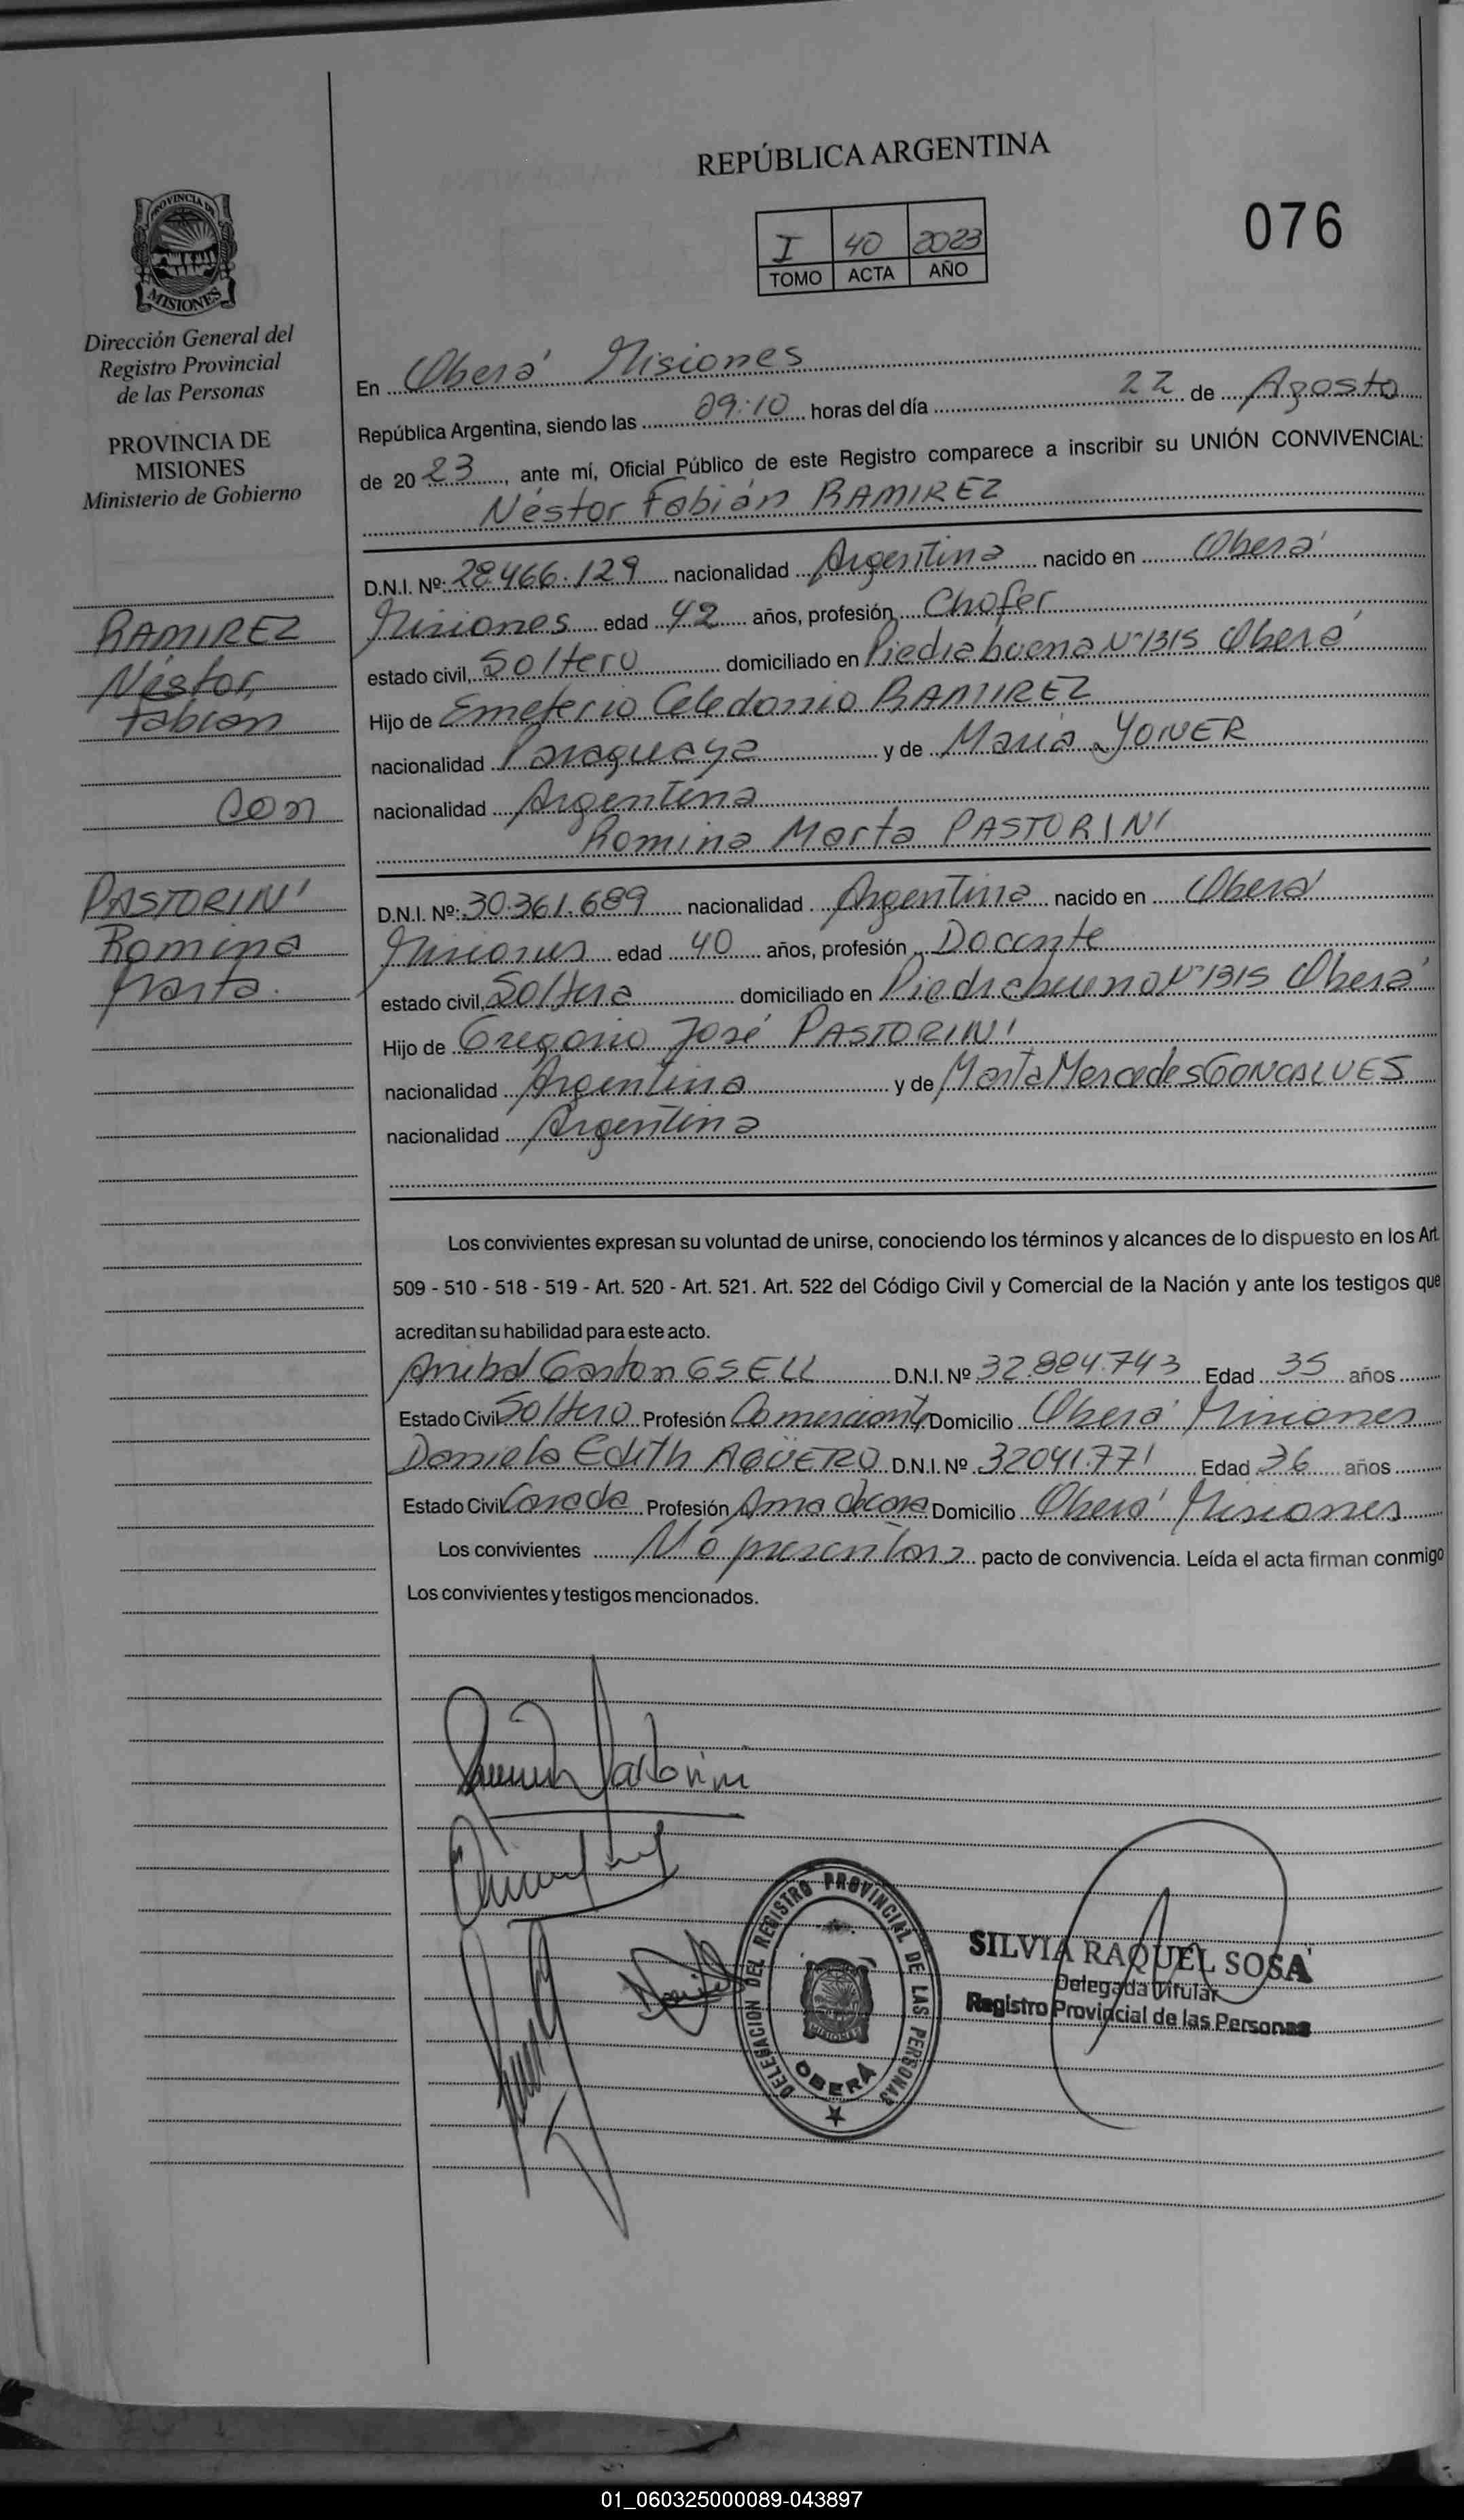 REPÚBLICA ARGENTINA
076
I 40 2023
TOMO ACTA AÑO
PROVINCIA DE
MISIONES
Dirección General del
Registro Provincial
de las Personas
PROVINCIA DE
MISIONES
Ministerio de Gobierno
RAMIREZ
Néstor
Fabián
con
PASTORINI
Romina
Marta.
En Oberá Misiones
República Argentina, siendo las 09:10 horas del día 22 de Agosto
de 2023, ante mí, Oficial Público de este Registro comparece a inscribir su UNIÓN CONVIVENCIAL:
Néstor Fabián RAMIREZ
D.N.I. Nº: 28.466.129 nacionalidad Argentina nacido en Oberá
Misiones edad 42 años, profesión Chofer
estado civil, Soltero domiciliado en Piedrabuena Nº1315 Oberá
Hijo de Emeterio Celedonio RAMIREZ
nacionalidad Paraguaya y de Maria
nacionalidad Argentina
Romina Marta PASTORINI
D.N.I. Nº: 30.361.689 nacionalidad Argentina nacido en Oberá
Misiones edad 40 años, profesión Docente
estado civil, Soltera domiciliado en Piedrabuena Nº1315 Oberá
Hijo de Gregorio José PASTORINI
nacionalidad Argentina y de Marta Mercedes GONCALVES
nacionalidad Argentina
Los convivientes expresan su voluntad de unirse, conociendo los términos y alcances de lo dispuesto en los Art.
509 - 510 - 518 - 519 - Art. 520 - Art. 521. Art. 522 del Código Civil y Comercial de la Nación y ante los testigos que
acreditan su habilidad para este acto.
Anibal Gaston GSELL D.N.I. Nº 32.884.743 Edad 35 años
Estado Civil Soltero Profesión Comerciante Domicilio Oberá Misiones
Daniela Edith AGÜERO D.N.I. Nº 32041.771 Edad 36 años
Estado Civil Casada Profesión Ama de casa Domicilio Oberá Misiones
Los convivientes No presentaron pacto de convivencia. Leída el acta firman conmigo
Los convivientes y testigos mencionados.
DELEGACION DEL REGISTRO PROVINCIAL DE LAS PERSONAS
MISIONES
OBERÁ
SILVIA RAQUEL SOSA
Delegada Titular
Registro Provincial de las Personas
01_060325000089-043897